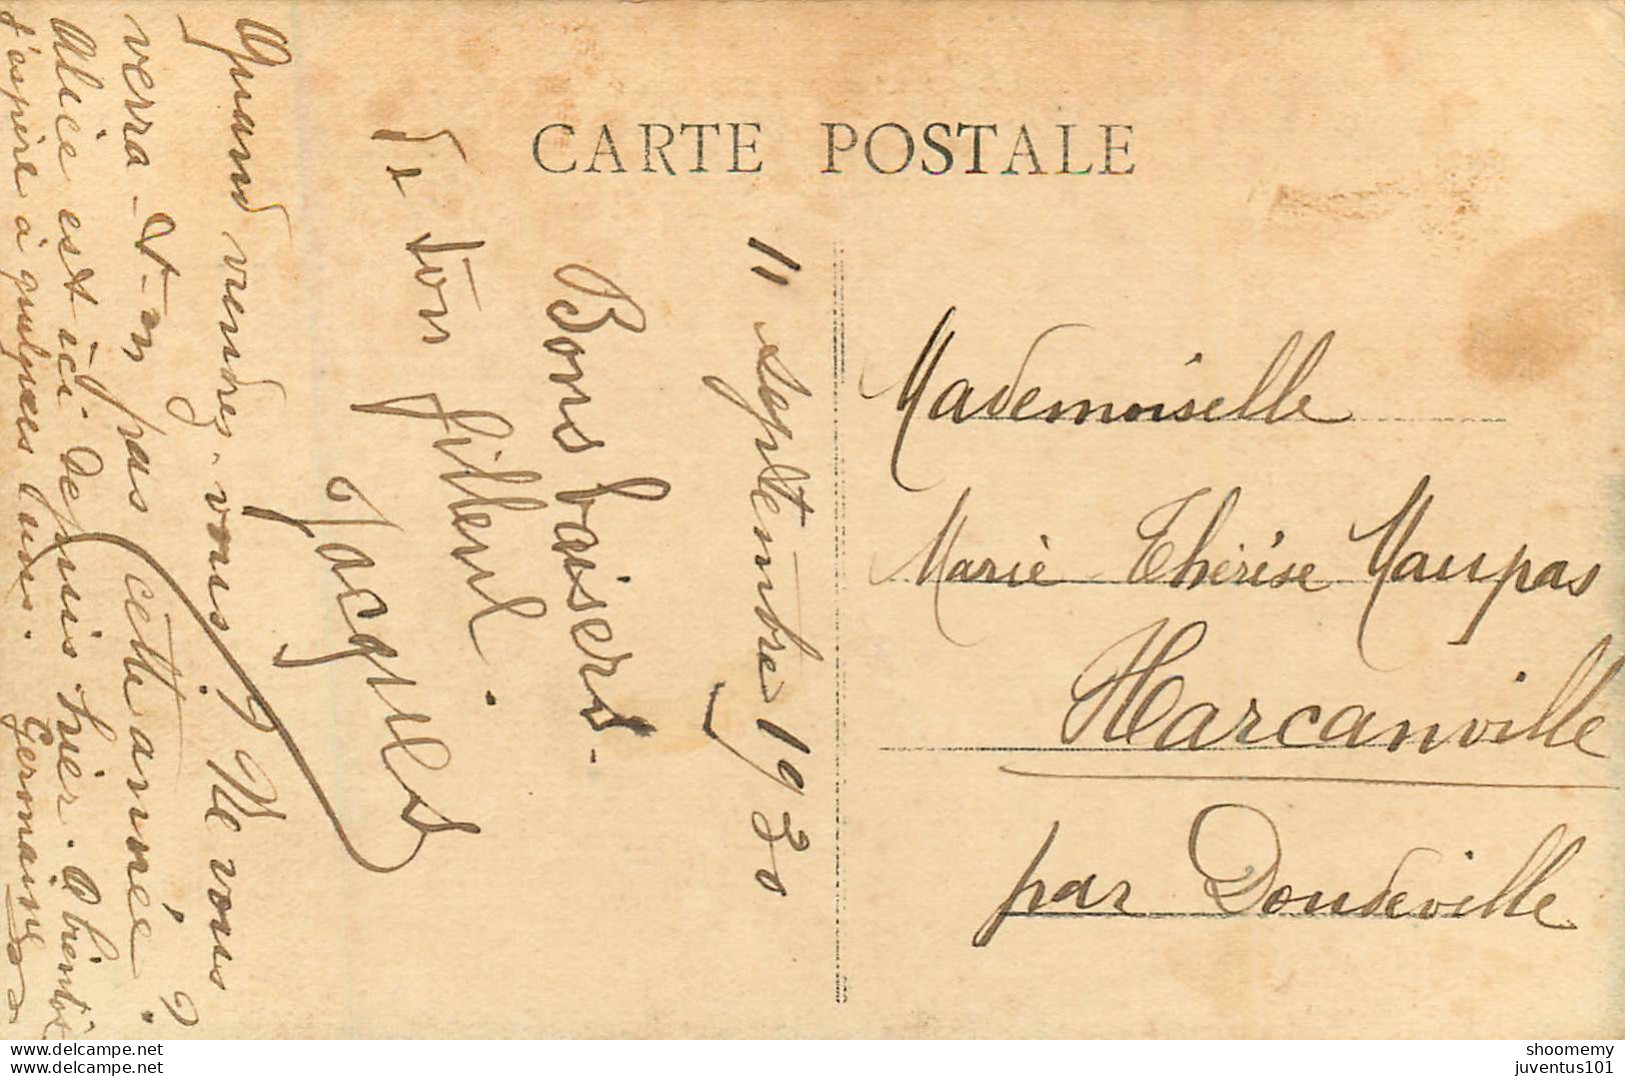 CARTE POSTALE
11 Septembre 1930
Bons baisers.
De ton filleul.
Jacques
Quand viendrez-vous? Ne vous
verra-t-on pas cette année?
Alice est ici depuis hier. A bientôt
j'espère à quelques uns.
Germaine
Mademoiselle
Marie Thérèse Maupas
Harcanville
par Doudeville
juventus101
juventus101
shoomemy
juventus101